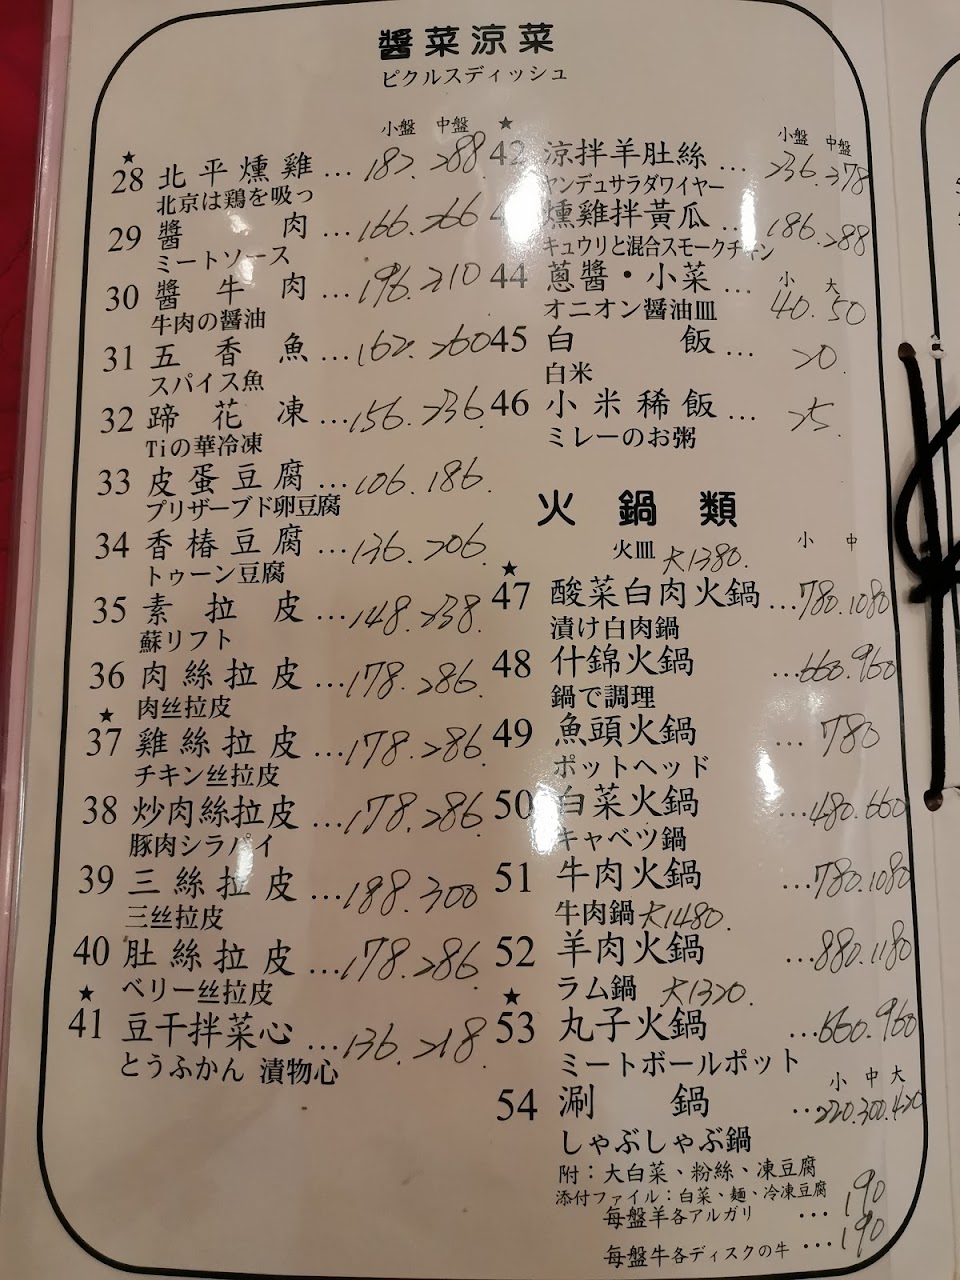 醬菜涼菜
ピクルスディッシュ
小盤 中盤
★
28 北平燻雞 ... 182. 288
北京は鶏を吸っ
29 醬肉 ... 166. 266
ミートソース
30 醬牛肉 ... 196. 210
牛肉の醤油
31 五香魚 ... 162. 260
スパイス魚
32 蹄花凍 ... 156. 236
Tiの華冷凍
33 皮蛋豆腐 ... 106. 186.
プリザーブド卵豆腐
34 香椿豆腐 ... 136. 206.
トゥーン豆腐
35 素拉皮 ... 148. 238.
蘇リフト
36 肉絲拉皮 ... 178. 286.
肉丝拉皮
★
37 雞絲拉皮 ... 178. 286
チキン丝拉皮
38 炒肉絲拉皮 ... 178. 286
豚肉シラパイ
39 三絲拉皮 ... 188. 300
三丝拉皮
40 肚絲拉皮 ... 178. 286
ベリー丝拉皮
★
41 豆干拌菜心 ... 136. 218
とうふかん 漬物心
★ 小盤 中盤
42 涼拌羊肚絲 ... 236. 378
ヤンデュサラダワイヤー
燻雞拌黃瓜 ... 186. 288
キュウリと混合スモークチキン
小 大
44 蔥醬・小菜 ... 40. 50
オニオン醤油皿
45 白飯 ... 20.
白米
46 小米稀飯 ... 25.
ミレーのお粥
火鍋類
火皿 大1380. 小 中
★
47 酸菜白肉火鍋 ... 780. 1080
漬け白肉鍋
48 什錦火鍋 ... 660. 960
鍋で調理
49 魚頭火鍋 ... 780
ポットヘッド
50 白菜火鍋 ... 480. 660
キャベツ鍋
51 牛肉火鍋 ... 780. 1080
牛肉鍋 大1480.
52 羊肉火鍋 ... 880. 1180
ラム鍋 大1320.
★
53 丸子火鍋 ... 660. 960
ミートボールポット
小 中 大
54 涮鍋 ... 220. 300. 420
しゃぶしゃぶ鍋
附：大白菜、粉絲、凍豆腐
添付ファイル：白菜、麺、冷凍豆腐
每盤羊各アルガリ ... 190
每盤牛各ディスクの牛 ... 190